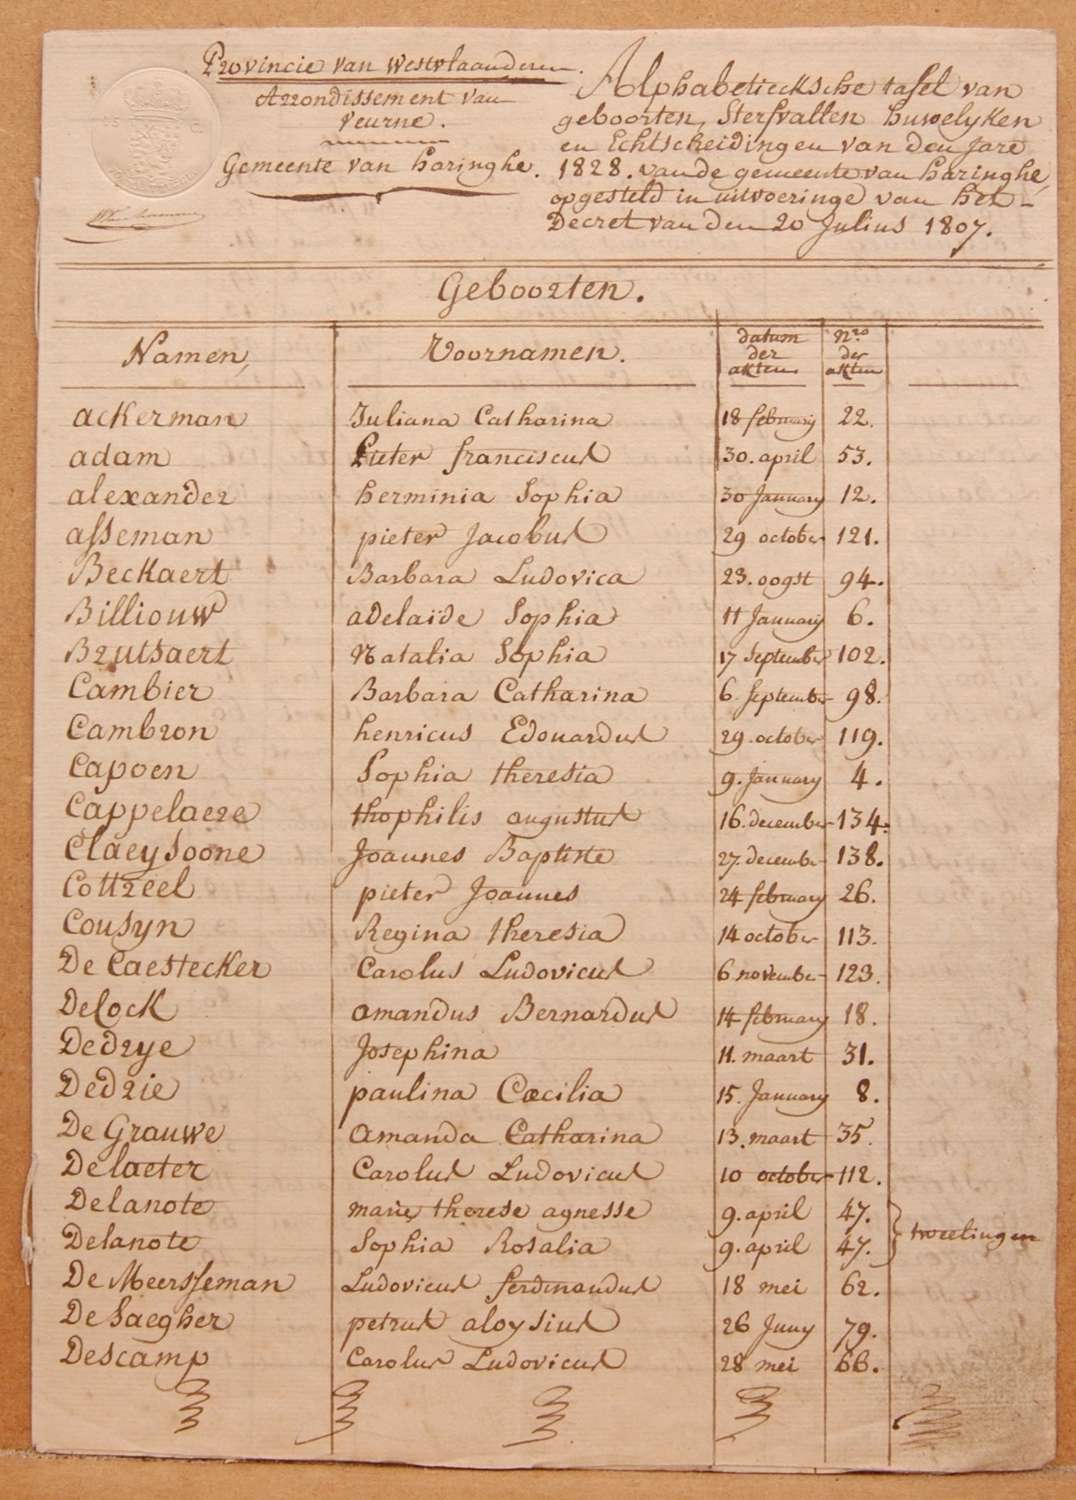 Provincie van Westvlaanderen.
Arrondissement van
veurne.
Gemeente van haringhe.
Alphabetiecksche tafel van
geboorten, Sterfvallen huwelyken
en Echtscheidingen van den Jare
1828. van de gemeente van haringhe,
opgesteld in uitvoeringe van het
Decret van den 20 Julius 1807.
Geboorten.
Namen, Voornamen. datum der akten Nro. der akten
ackerman Juliana Catharina 18 february 22.
adam Pieter franciscus 30. april 53.
alexander herminia Sophia 30 January 12.
asseman pieter Jacobus 29 october 121.
Beckaert Barbara Ludovica 23. oogst 94.
Billiouw adelaïde Sophia 11 January 6.
Brutsaert Natalia Sophia 17 September 102.
Cambier Barbara Catharina 6. September 98.
Cambron henricus Edouardus 29. october 119.
Capoen Sophia theresia 9. January 4.
Cappelaere thophilis augustus 16. december 134.
Claeysoone Joannes Baptiste 27. december 138.
Cottreel pieter Joannes 24 february 26.
Cousyn Regina theresia 14 october 113.
De Caestecker Carolus Ludovicus 6 november 123.
Delock amandus Bernardus 14 february 18.
Dedrye Josephina 11. maart 31.
Dedrie paulina Cœcilia 15. January 8.
De Grauwe amanda Catharina 13. maart 35.
Delaeter Carolus Ludovicus 10 october 112.
Delanote marie therese agnesse 9. april 47.
Delanote Sophia Rosalia 9. april 47. } tweelingen
De Meersseman Ludovicus ferdinandus 18 mei 62.
De Saegher petrus aloysius 26 Juny 79.
Descamp Carolus Ludovicus 28 mei 66.